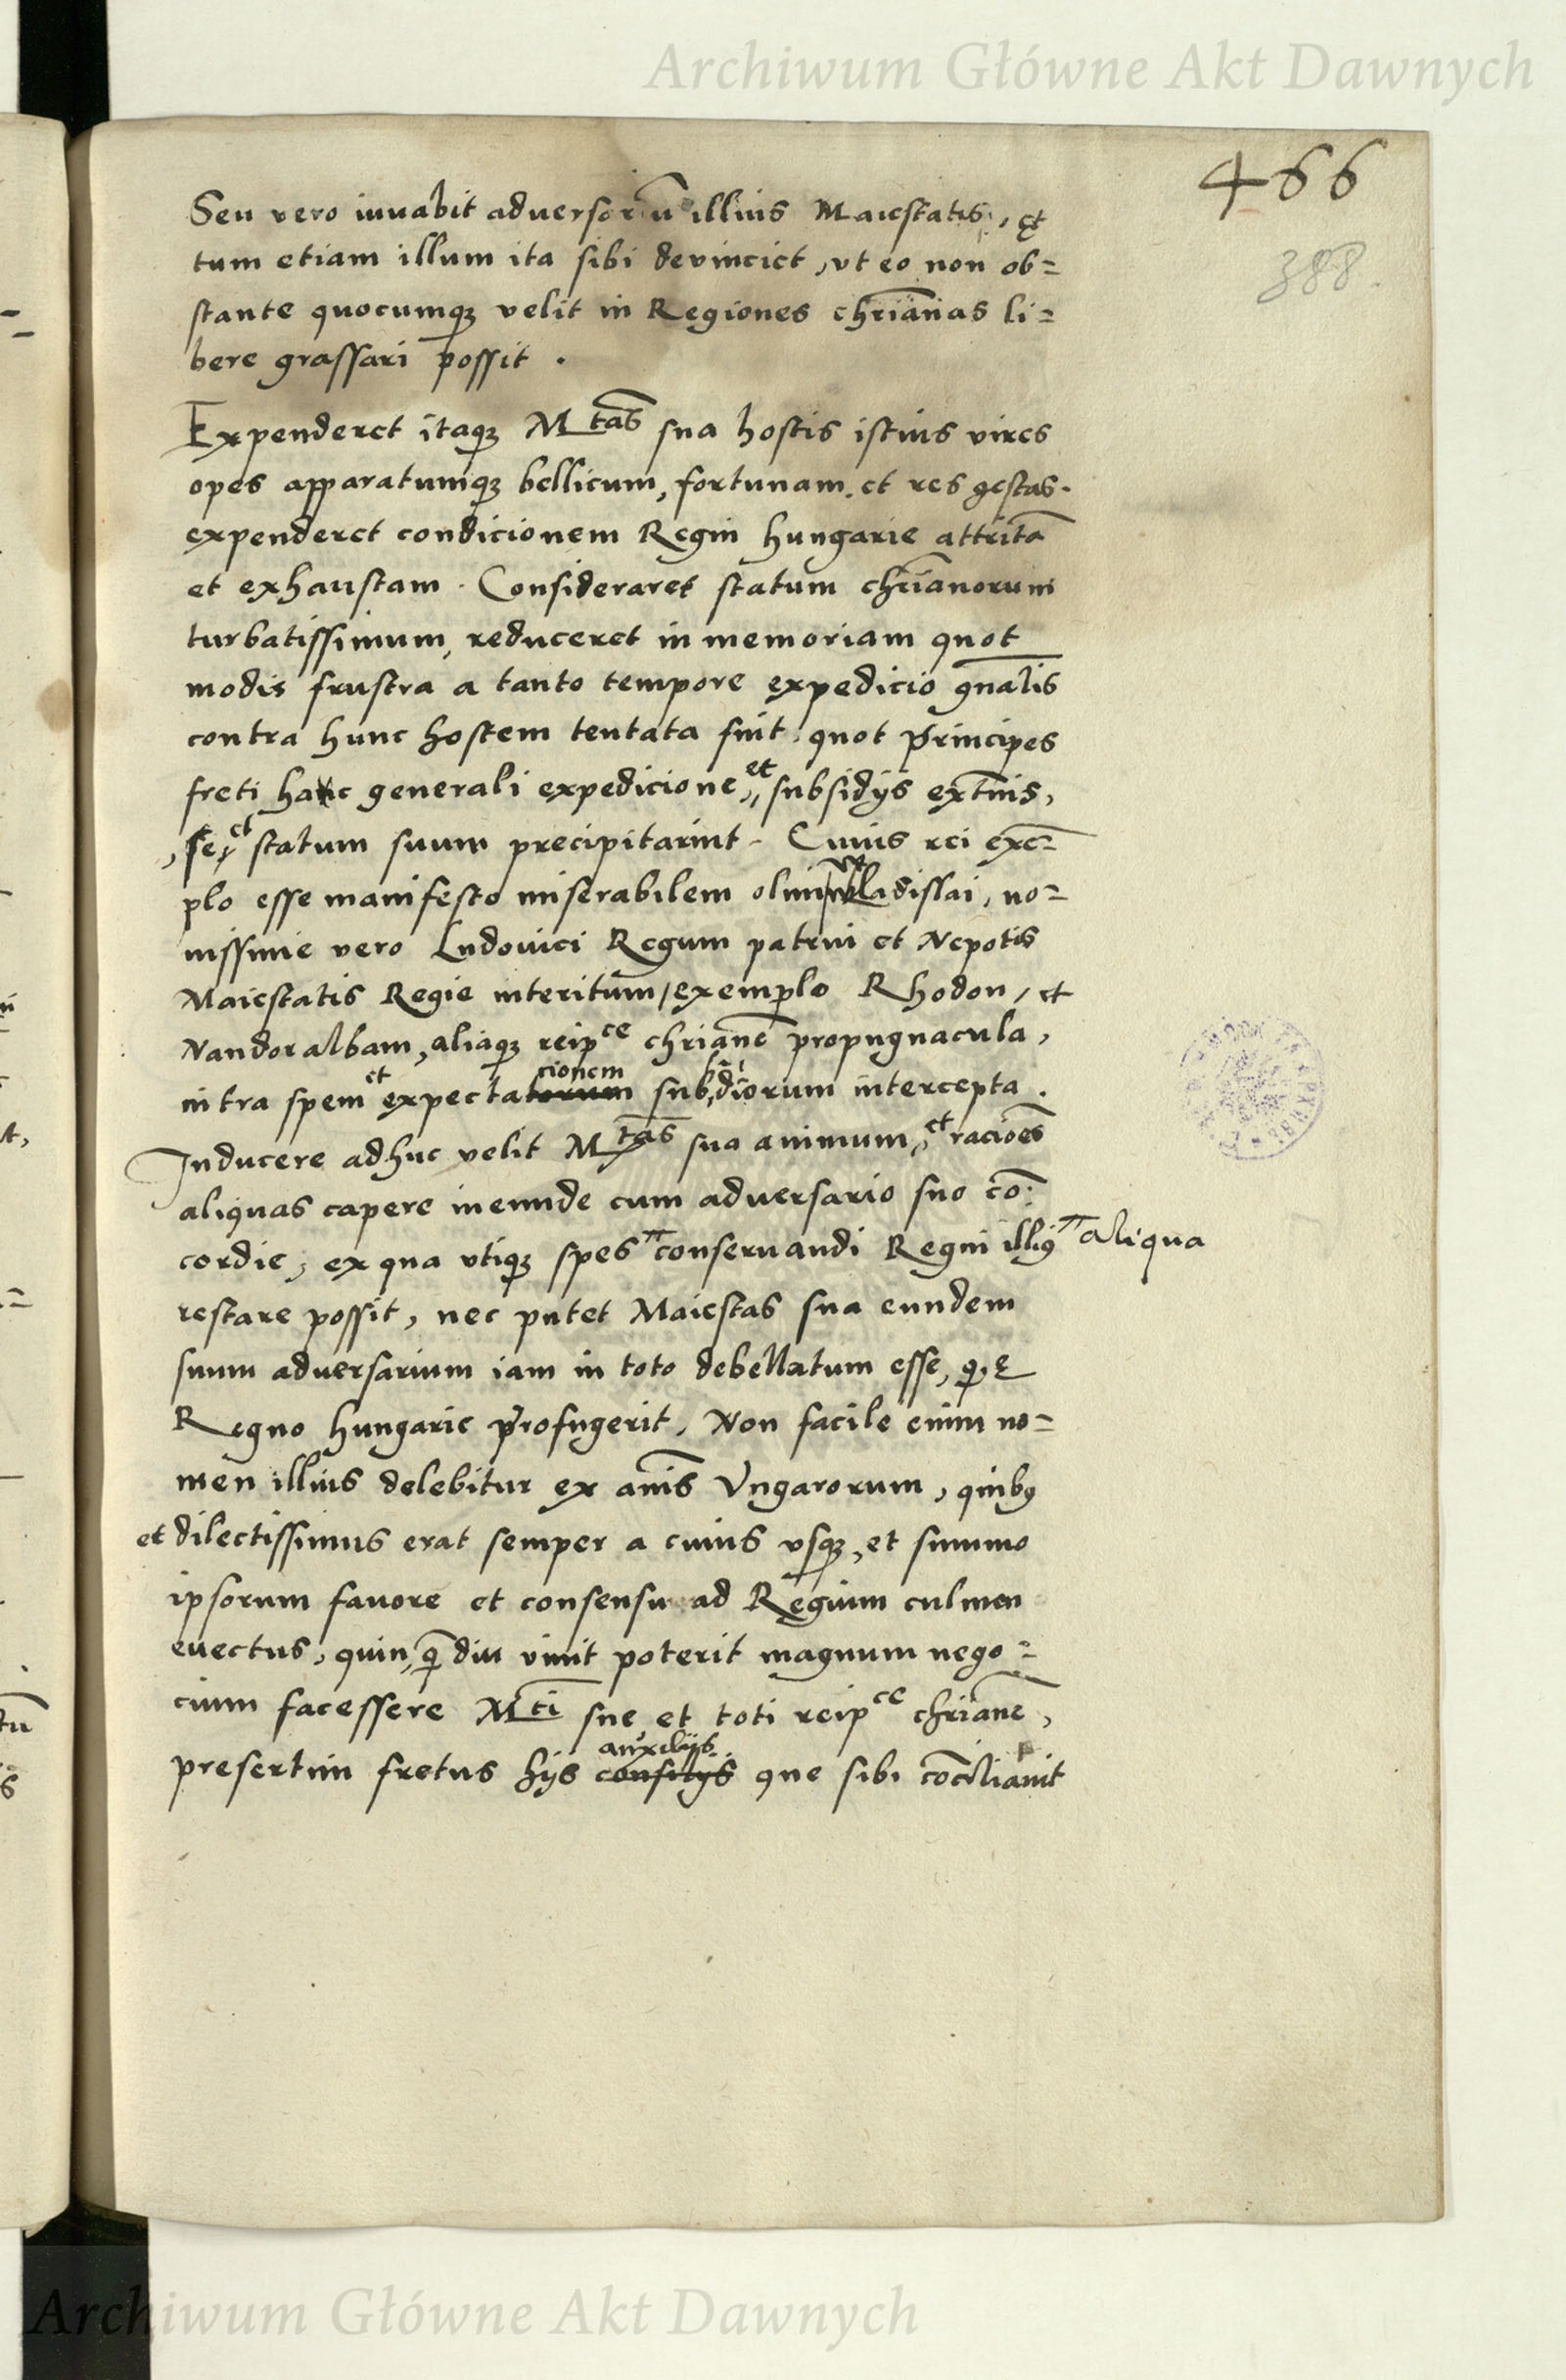 Archiwum Główne Akt Dawnych
466
388.
Seu vero iuuabit adversoriũ illius Maiestatis, et
tum etiam illum ita sibi devinciet, vt eo non ob=
stante quocumqꝫ velit in Regiones chrĩanas li=
bere grassari possit .
Expenderet itaqꝫ Mtas sua hostis istius vires
opes apparatumqꝫ bellicum, fortunam, et res gestas.
expenderet condicionem Regni hungarie attritã
et exhaustam . Consideraret statum chrĩanorum
turbatissimum, reduceret in memoriam quot
modis frustra a tanto tempore expedicio gñalis
contra hunc hostem tentata sint, quot principes
freti hac generali expedicione, et subsidijs extñis,
se, et statum suum precipitarint . Cuius rei exe=
plo esse manifesto miserabilem olim Wladislai, no=
uissime vero Ludouici Regum patrui et Nepotis
Maiestatis Regie interitum, exemplo Rhodon, et
Nandoralbam, aliaqꝫ reipce chriane propugnacula,
intra spem et expectacionem subsidiorum intercepta .
Inducere adhuc velit Mtas sua animum, et racioẽs
aliquas capere ineunde cum adversario suo cõ:
cordie, ex qua vtiqꝫ spes ᴨ conseruandi Regni illiꝰ ᴨ aliqua
restare possit, nec putet Maiestas sua eundem
suum adversarium iam in toto debellatum esse, qꝫ, e
Regno hungarie profugerit, Non facile enim no=
men illius delebitur ex aĩis Vngarorum, quibꝰ
et dilectissimus erat semper a cuius vsqꝫ, et summo
ipsorum fauore et consensu ad Regium culmen
euectus, quin, q̃ diu viuit poterit magnum nego=
cium facessere Mti sue et toti reipce chriane,
presertim fretus hijs auxilijs que sibi cõciliauit
Archiwum Główne Akt Dawnych